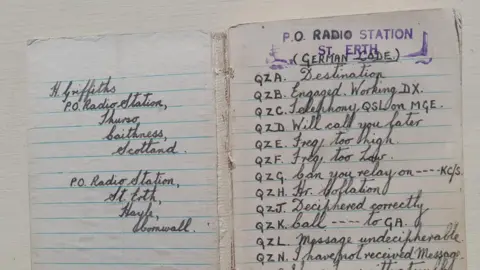 H. Griffiths
P.O. Radio Station,
Thurso,
Caithness,
Scotland.
P.O. Radio Station,
St. Erth,
Hayle,
Cornwall.
P.O. RADIO STATION
ST. ERTH
(GERMAN CODE.)
QZA. Destination
QZB. Engaged. Working DX.
QZC. Telephony. QSL on MGE.
QZD Will call you later
QZE. Freq, too high.
QZF. Freq, too Low.
QZG. Can you relay on ---- KC/S.
QZH. Hr. notation
QZJ. Deciphered correctly
QZK. Call ---- to GA.
QZL. Message undecipherable
QZN. I have not received Message